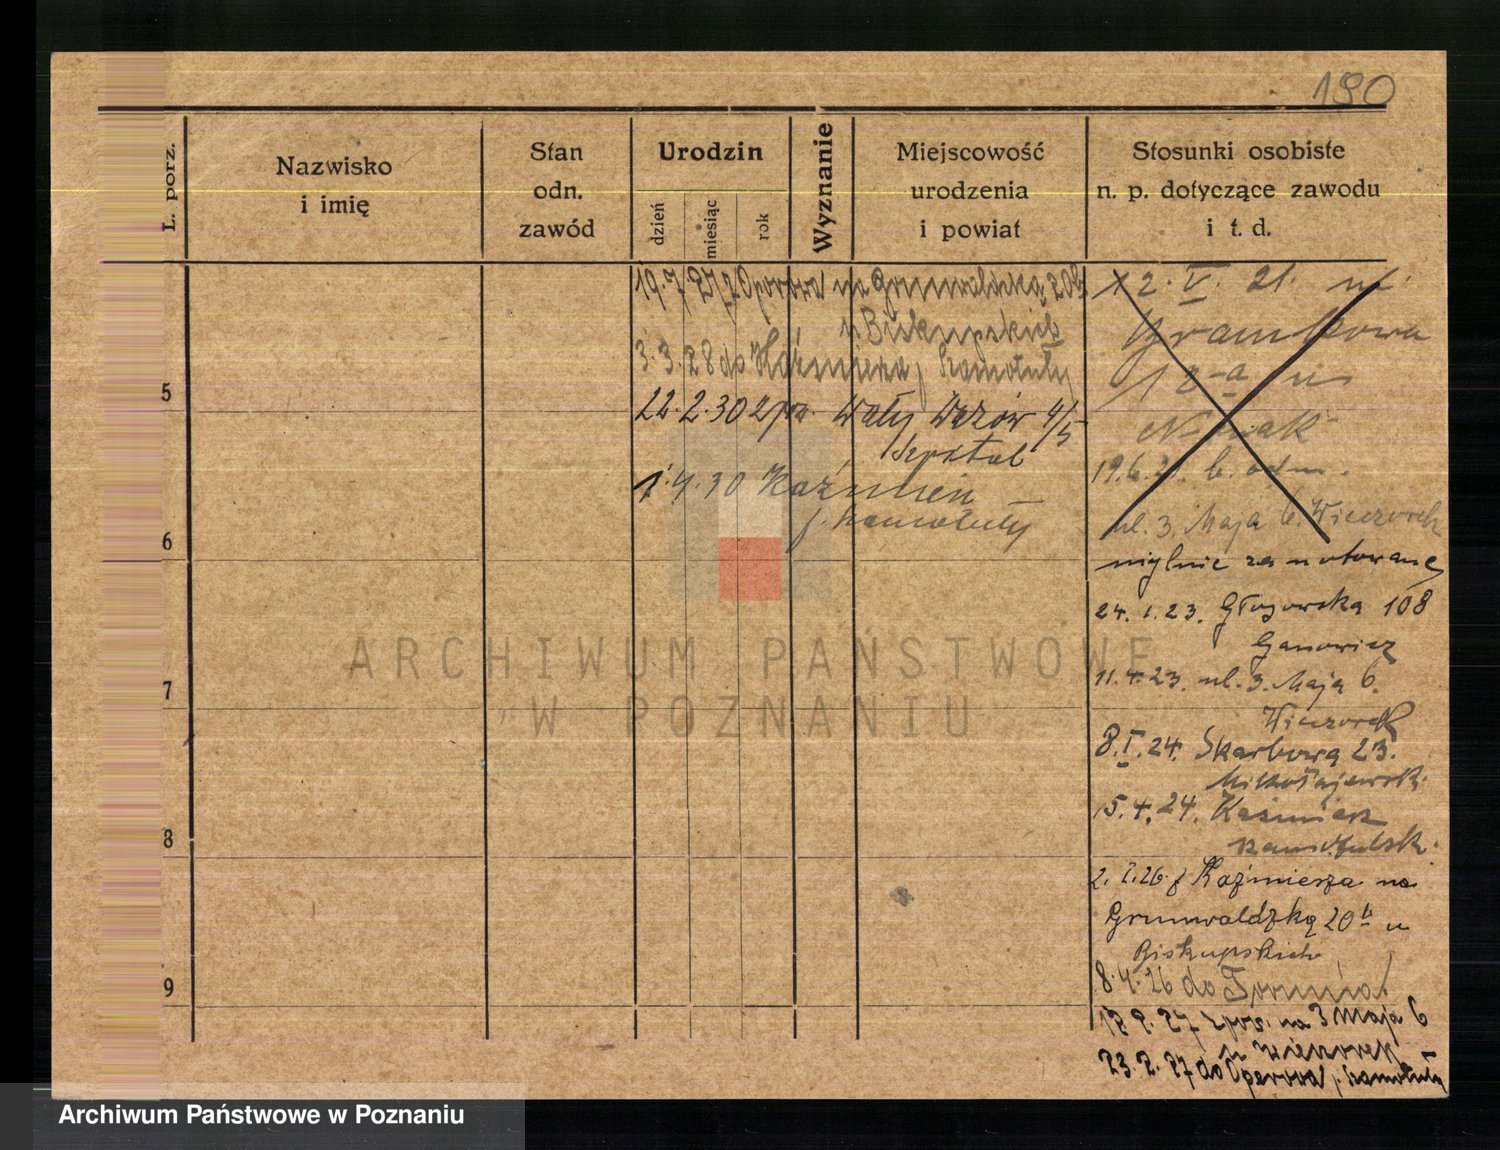 190
L. porz.
Nazwisko
i imię
Stan
odn.
zawód
Urodzin
dzień
miesiąc
rok
Wyznanie
Miejscowość
urodzenia
i powiat
Stosunki osobiste
n. p. dotyczące zawodu
i t. d.
5
6
7
8
9
19.7.27 z Oporowa na Grunwaldzką 20b
u Biskupskich
3.3.28 do Kaźmierza, Szamotuły
22.2.30 z pow. Wały Wazów 4/5
Szpital
1.4.30 Kaźmierz
p. Szamotuły
12.V.21. ul.
18a u
Nowak
19.6.21. b. odm.
ul. 3. Maja 6. Wieczorek
mylnie zanotowane
24.1.23. Głogowska 108
Ganowicz
11.4.23. ul. 3. Maja 6.
Wieczorek
8.I.24. Skarbowa 23.
Mikołajewski
15.4.24. Kaźmierz
2.1.26. z Kaźmierza na
Grunwaldzką 20b u
Biskupskich
8.4.26 do Torunia
na 3 Maja 6
u Wieczorek
23.2.27 do Oporowa, p. Szamotuły
ARCHIWUM PAŃSTWOWE
W POZNANIU
Archiwum Państwowe w Poznaniu